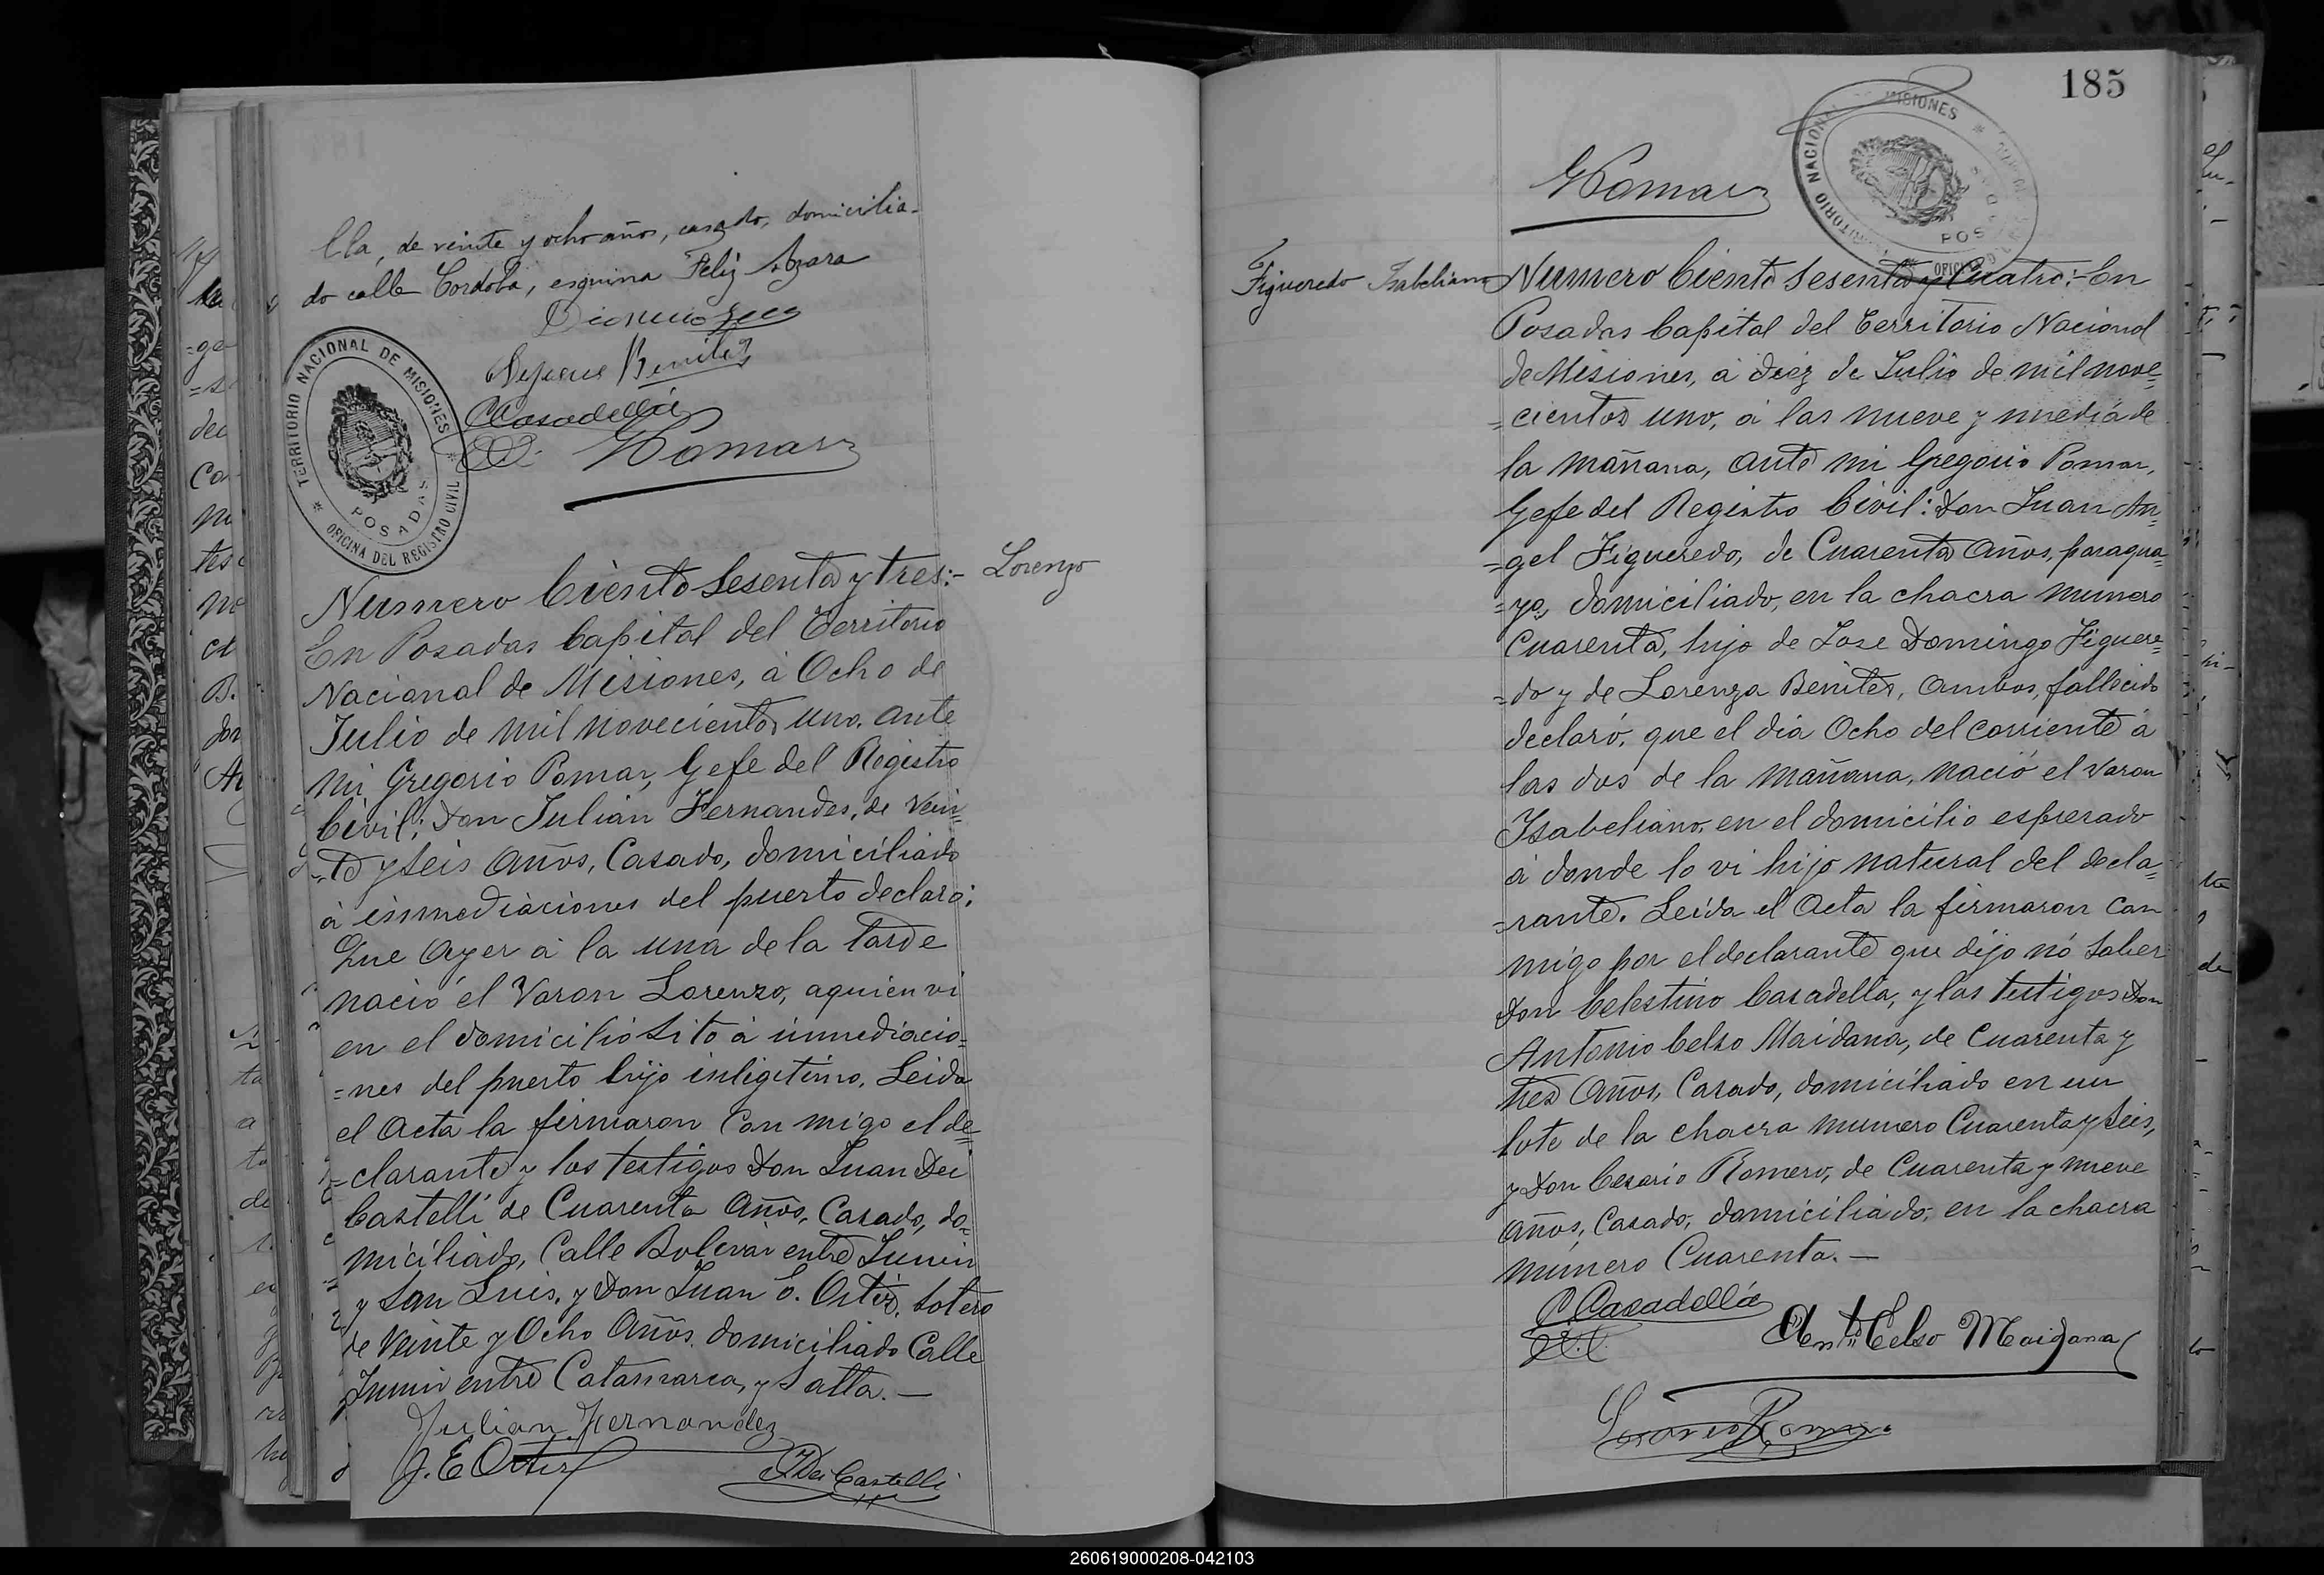 lla, de veinte y ocho años, casado, domicilia-
do calle Cordoba, esquina Feliz Azara
Benitez
CCasadellá
GPomar
TERRITORIO NACIONAL DE MISIONES
OFICINA DEL REGISTRO CIVIL
POSADAS
Numero Ciento Sesenta y tres:-
Lorenzo
En Posadas Capital del Territorio
Nacional de Misiones, á Ocho de
Julio de mil novecientos uno. ante
mi Gregorio Pomar, Gefe del Registro
Civil; Don Julian Fernandes, de Vein=
=te y seis Años, Casado, domiciliado
á inmediaciones del puerto declaró:
Que Ayer á la una de la tarde
nació el Varon Lorenzo, aquien vi
en el domicilio Sito á inmediacio=
=nes del puerto hijo inligitimo. Leida
el Acta la firmaron Con migo el de=
=clarante y los testigos Don Juan Dei
Castelli de Cuarenta Años, Casado, do=
miciliado, Calle Bolivar entre Junin
y San Luis, y Don Juan E. Ortiz, Soltero
de Veinte y Ocho Años. domiciliado Calle
Junin entre Catamarca, y Salta.—
Julian Fernandez
J. E Ortiz
J Dei Castelli
185
TERRITORIO NACIONAL DE MISIONES
POSADAS
GPomar
Figueredo Isabeliano
Numero Ciento Sesenta y Cuatro:- En
Posadas Capital del Territorio Nacional
de Misiones, á diez de Julio de mil nove=
=cientos uno, á las nueve y media de
la mañana, ante mi Gregorio Pomar,
Gefe del Registro Civil: Don Juan An=
=gel Figueredo, de Cuarenta Años, paragua=
=yo, domiciliado, en la chacra numero
Cuarenta, hijo de Jose Domingo Figuere=
=do y de Lorenza Benites, Ambos, fallecido
declaró, que el dia Ocho del corriente á
las dos de la mañana, nació el Varon
Isabeliano, en el domicilio espresado
á donde lo vi hijo natural del decla=
=rante. Leida el Acta la firmaron Con
migo por el declarante que dijo nó Saber
Don Celestino Casadella, y los testigos Don
Antonio Celso Maidana, de Cuarenta y
tres Años, Casado, domiciliado en un
lote de la chacra numero Cuarenta y Seis,
y Don Cesario Romero, de Cuarenta y nueve
Años, Casado, domiciliado, en la chacra
numero Cuarenta.—
C Casadellá
Anto Celso Maidana
260619000208-042103